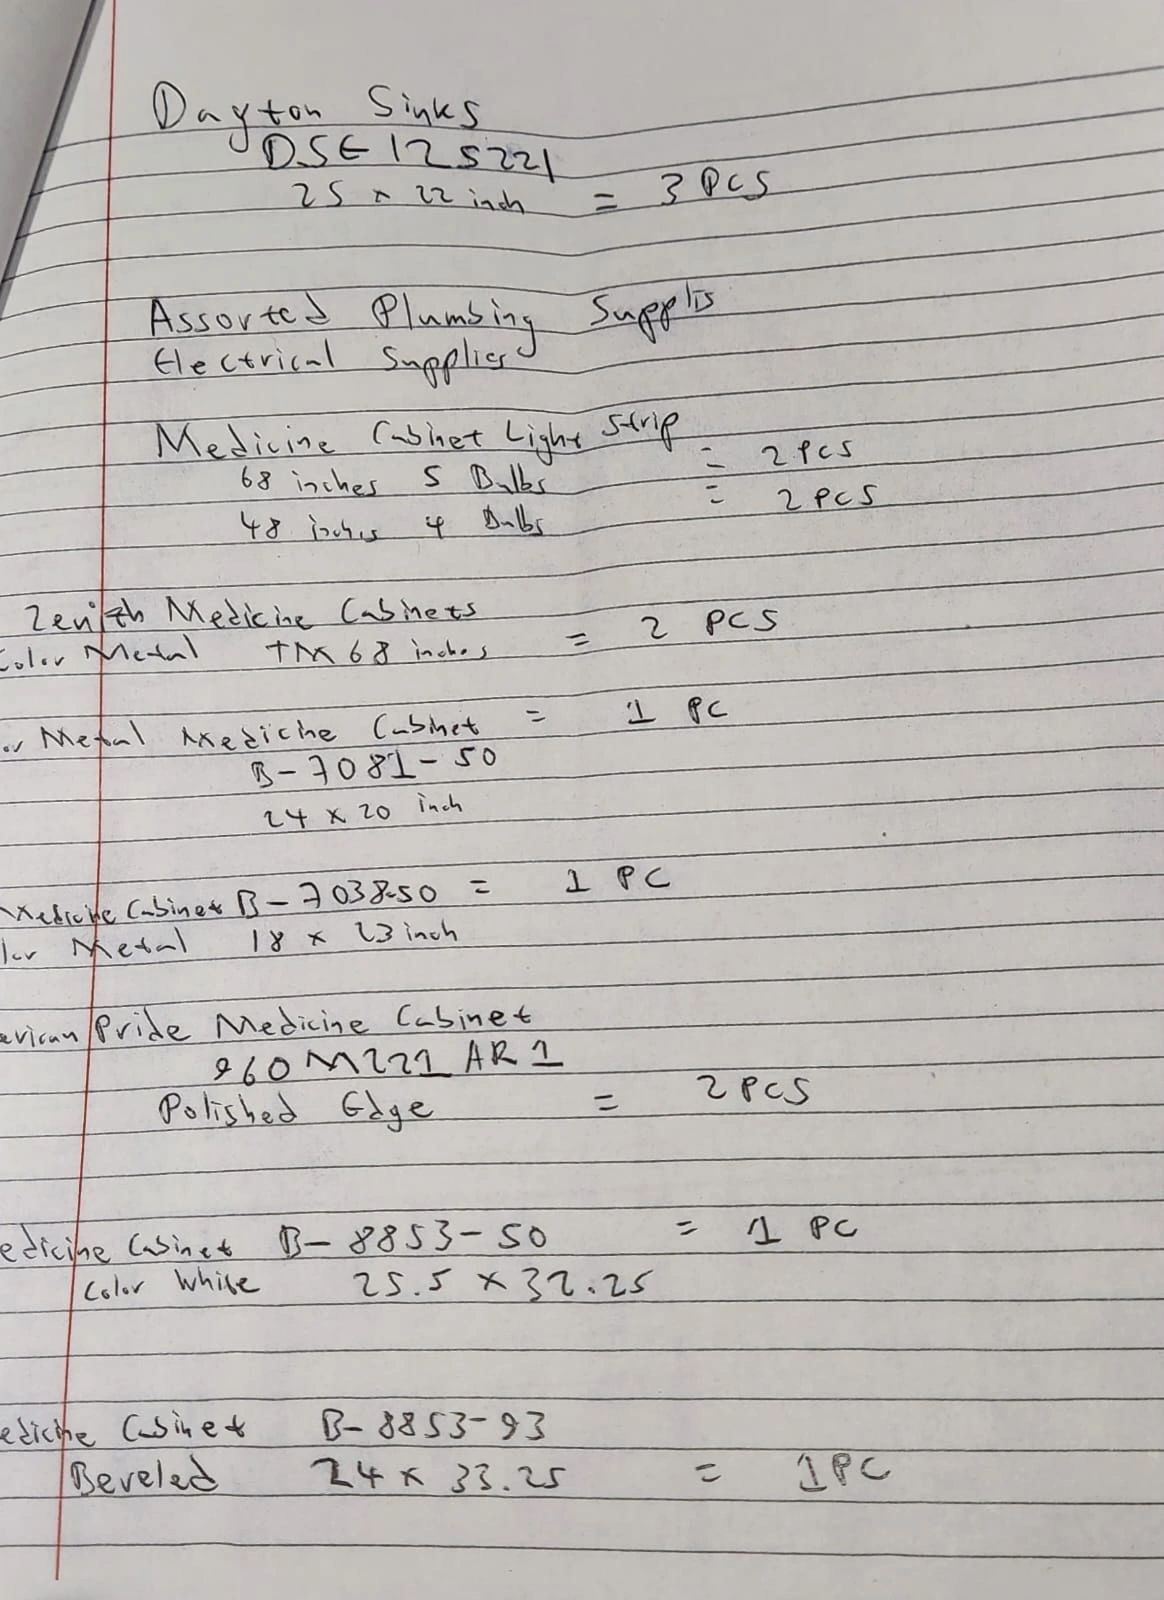 Dayton Sinks
DSE125221
25 x 22 inch = 3 PCS
Assorted Plumbing Supplis
Electrical Supplies
Medicine Cabinet Light Strip
68 inches 5 Bulbs = 2 PCS
48 inches 4 Bulbs = 2 PCS
Zenith Medicine Cabinets
Color Metal TM68 inches = 2 PCS
or Metal Medicine Cabinet = 1 PC
B-7081-50
24 x 20 inch
Medicine Cabinet B-7038-50 = 1 PC
lor Metal 18 x 23 inch
erican Pride Medicine Cabinet
960M221AR1
Polished Edge = 2 PCS
edicine Cabinet B-8853-50 = 1 PC
Color White 25.5 x 32.25
edicine Cabinet B-8853-93
Beveled 24 x 33.25 = 1 PC